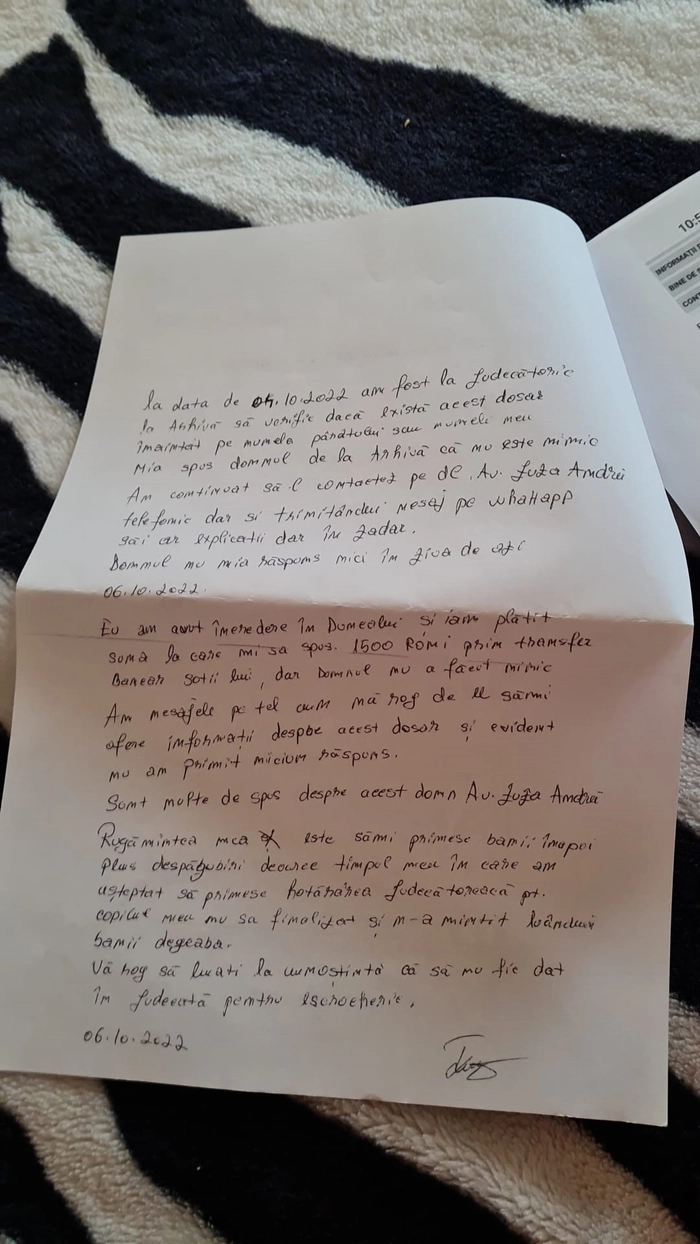 la data de 04.10.2022 am fost la Judecătorie
la Arhivă să verific dacă există acest dosar
înaintat pe numele pârâtului sau numele meu
Mia spus domnul de la Arhivă că nu este nimic
Am continuat să-l contactez pe dl. Av. Juza Andrei
telefonic dar si trimitându-i mesaj pe whatapp
săi cer explicatii dar în zadar.
Domnul nu mia răspuns nici în ziua de azi
06.10.2022.
Eu am avut încredere în Domnului si iam plătit
suma la care mi sa spus. 1500 Roni prin transfer
Bancar sotii lui, dar Domnul nu a făcut nimic
Am mesajele pe tel cum mă rog de el sămi
ofere informații despre acest dosar și evident
nu am primit niciun răspuns.
Sunt multe de spus despre acest domn Av. Juza Andrei
Rugămintea mea este sămi primesc banii înapoi
Plus despăgubiri deoarece timpul meu în care am
așteptat să primesc hotărârea Judecătorească pt.
copilul meu nu sa finalizat și m-a mintit luându-i
banii degeaba.
Vă rog să luati la cunostintă că să nu fie dat
în Judecată pentru escrocherie.
06.10.2022